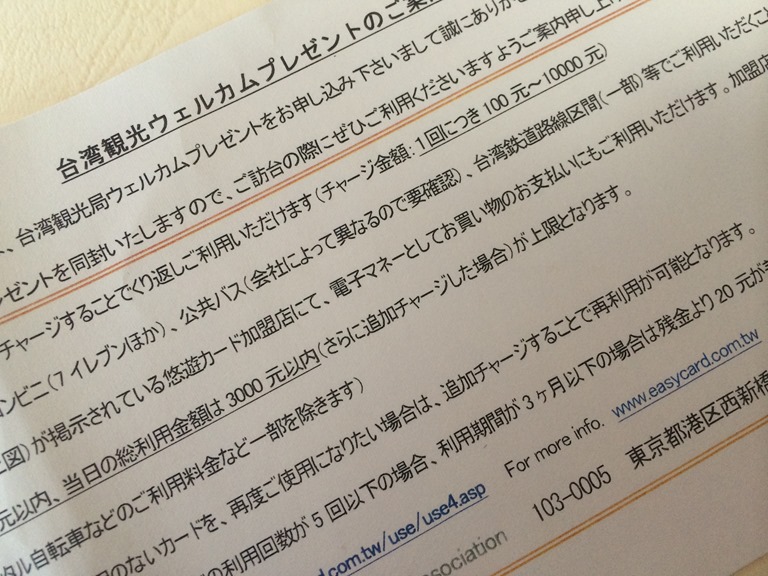 台湾観光ウェルカムプレゼントのご案
、台湾観光局ウェルカムプレゼントをお申し込み下さいまして誠にありがと
レゼントを同封いたしますので、ご訪台の際にぜひご利用くださいますようご案内申し上げ
チャージすることでくり返しご利用いただけます(チャージ金額:1回につき100元~10000元)
ンビニ(7イレブンほか)、公共バス(会社によって異なるので要確認)、台湾鉄道路線区間(一部)等でご利用いただくこと
図)が掲示されている悠遊カード加盟店にて、電子マネーとしてお買い物のお支払いにもご利用いただけます。加盟店
元以内、当日の総利用金額は3000元以内(さらに追加チャージした場合)が上限となります。
タル自転車などのご利用料金など一部を除きます)
のないカードを、再度ご使用になりたい場合は、追加チャージすることで再利用が可能となります。
の利用回数が5回以下の場合、利用期間が3ヶ月以下の場合は残金より20元が
.com.tw/use/use4.asp For more info. www.easycard.com.tw
sociation 103-0005 東京都港区西新橋